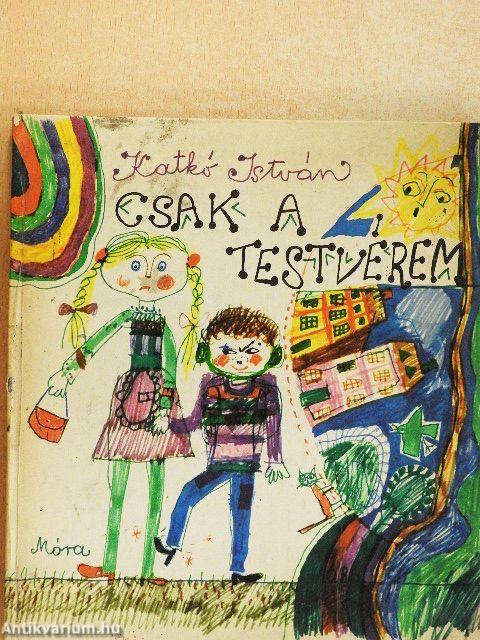 Katkó István
CSAK A
TESTVÉREM
Móra
Antikvarium.hu